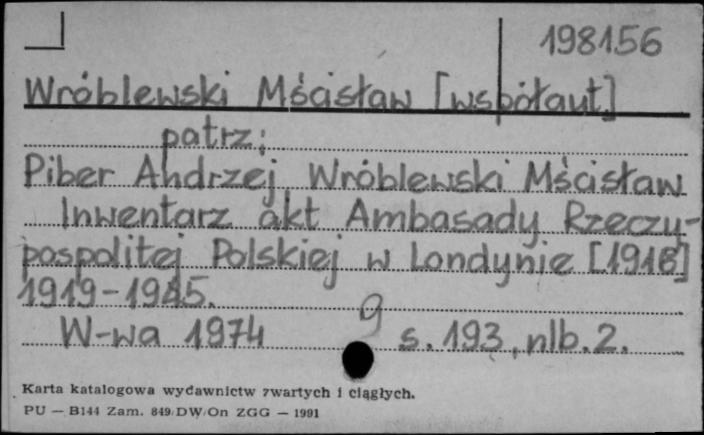 198156
Wróblewski Mścisław [współaut]
patrz:
Piber Andrzej, Wróblewski Mścisław
Inwentarz akt Ambasady Rzeczy-
pospolitej Polskiej w Londynie [1918]
1919-1945.
W-wa 1974 s. 193, nlb. 2.
Karta katalogowa wydawnictw zwartych i ciągłych.
PU — B144 Zam. 849/DW/On ZGG — 1991